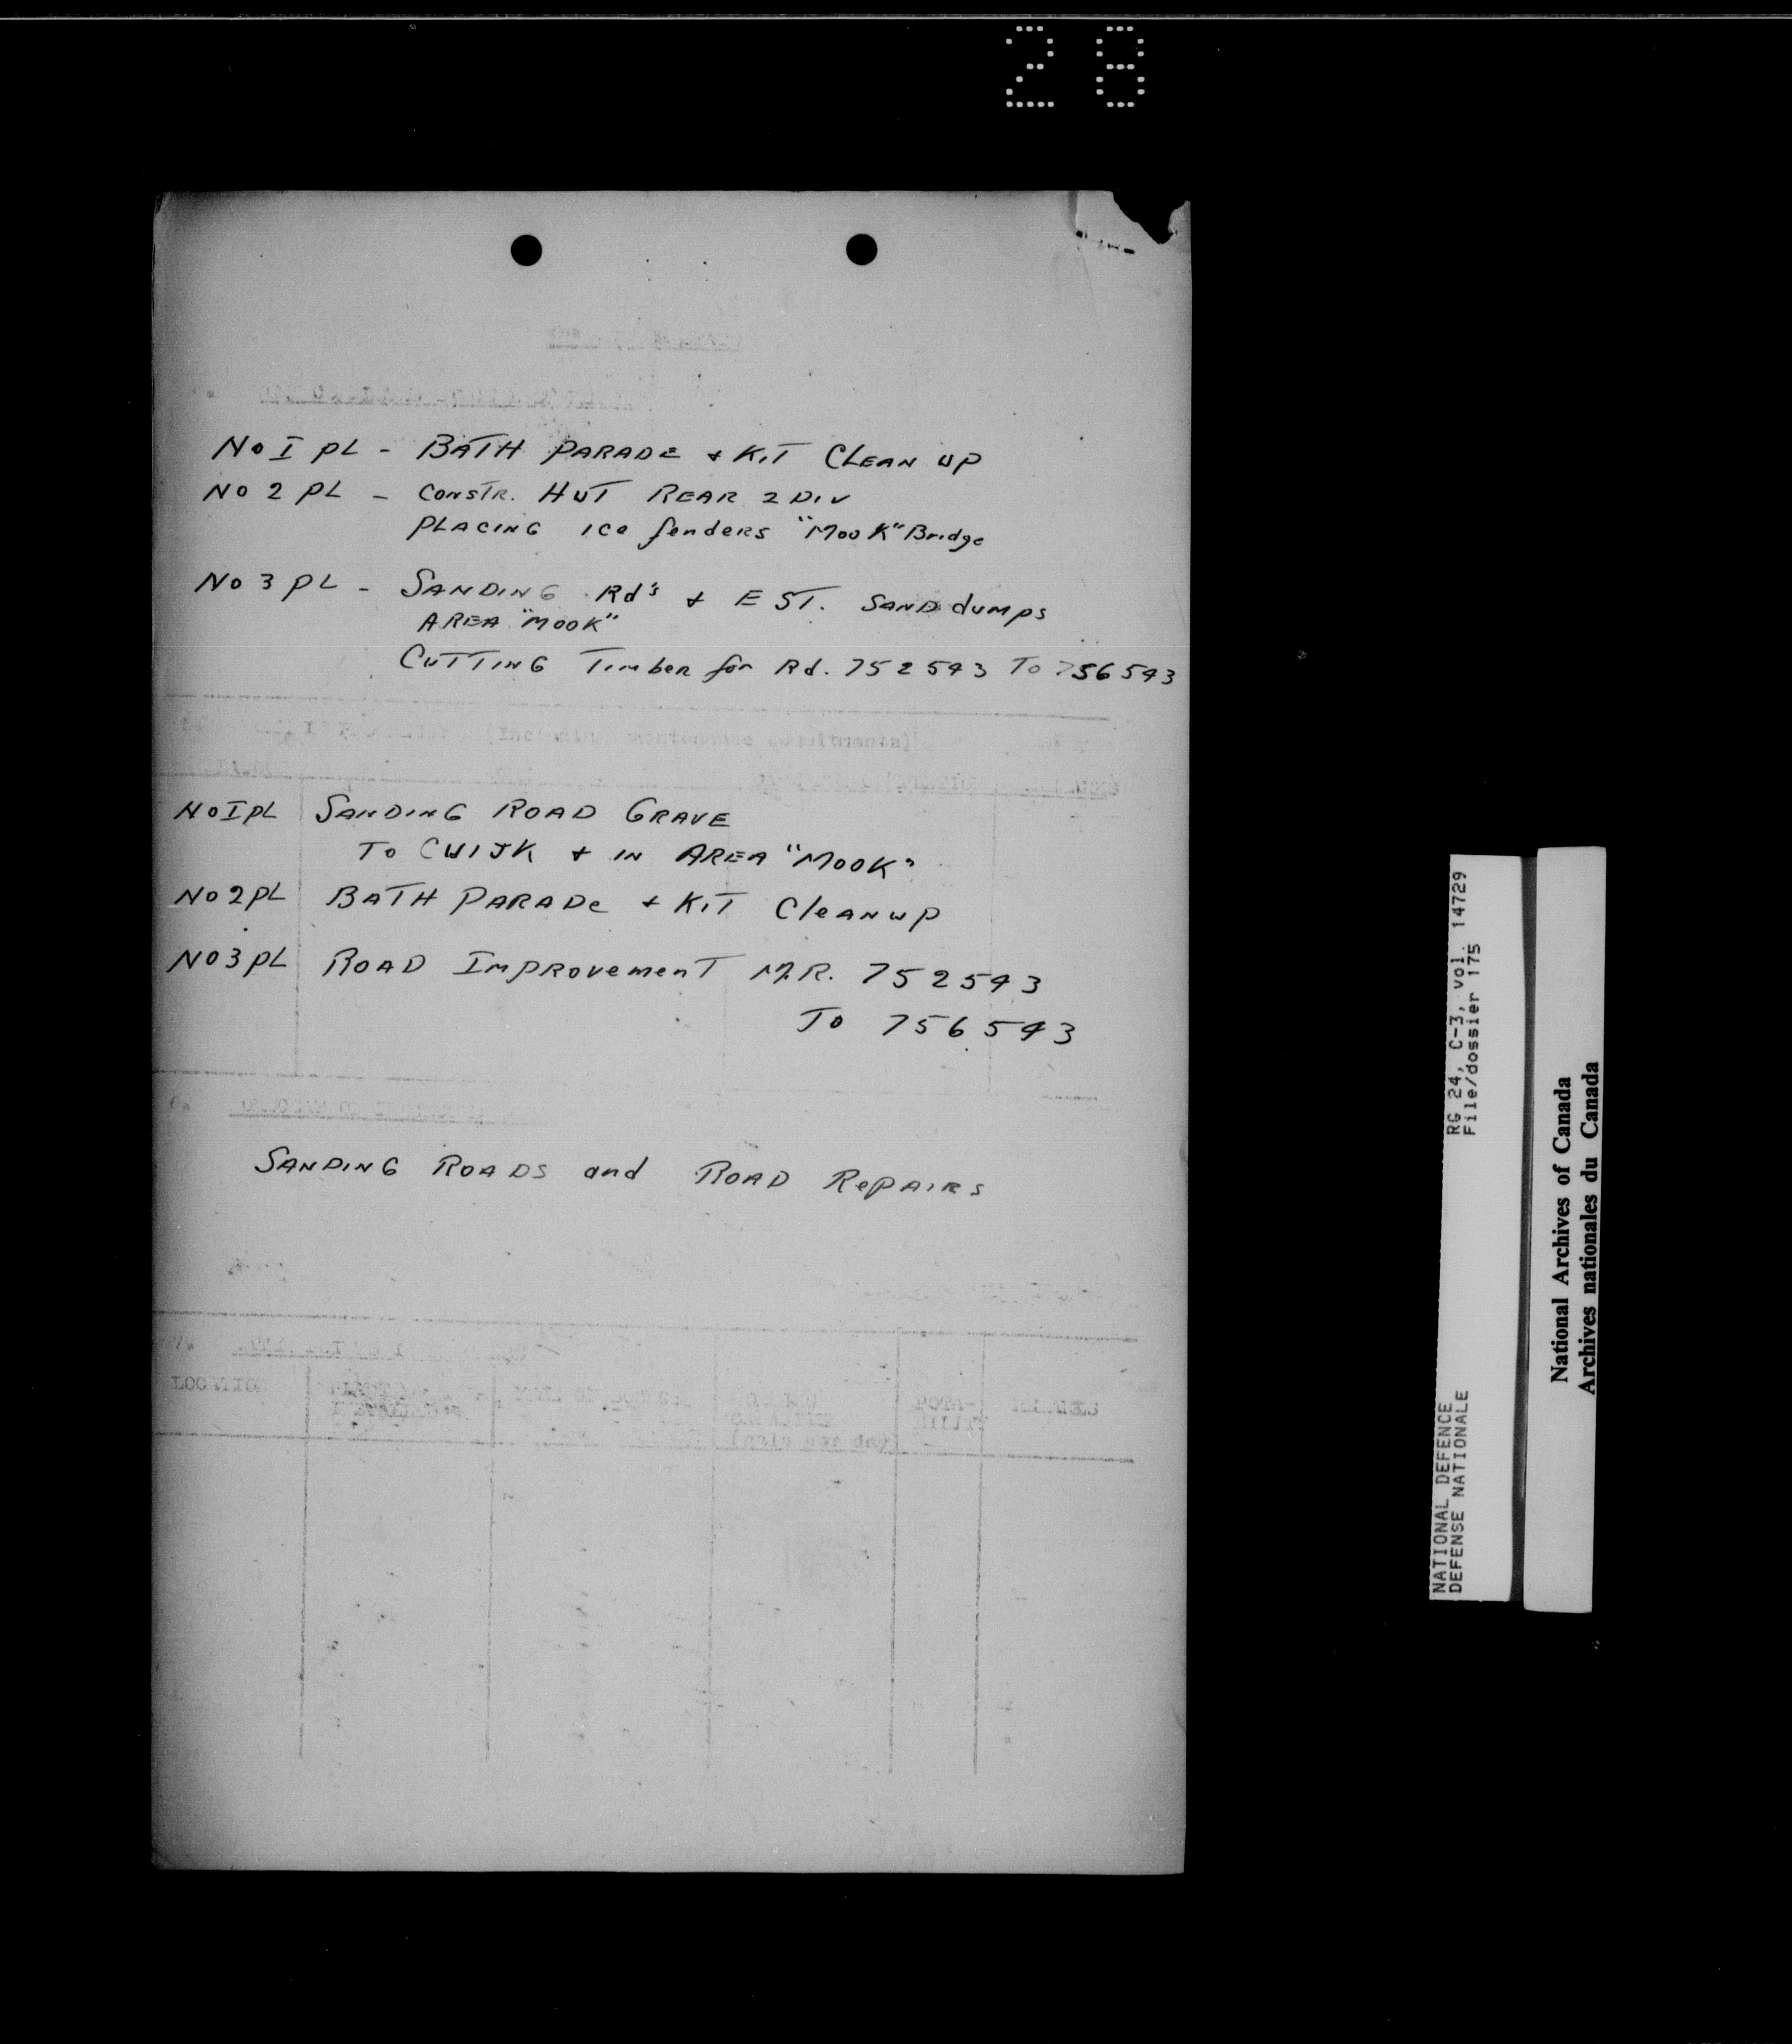 28
No I PL - BATH PARADE + KIT CLEAN UP
No 2 PL - CONSTR. HUT REAR 2 DIV
PLACING ICe fenders "MOOK" Bridge
No 3 PL - SANDING Rd's + EST. SAND dumps
AREA "MOOK"
CUTTING Timber for Rd. 752543 To 756543
No I PL SANDING ROAD GRAVE
TO CUIJK + IN AREA "MOOK"
No 2 PL BATH PARADe + KIT CleANup
No 3 PL ROAD ImpRovemenT M.R. 752543
To 756543
SANDING ROADS and ROAD RePAIRs
LOCATION
RG 24, C-3, vol. 14729
File/dossier 175
NATIONAL DEFENCE
DEFENSE NATIONALE
National Archives of Canada
Archives nationales du Canada